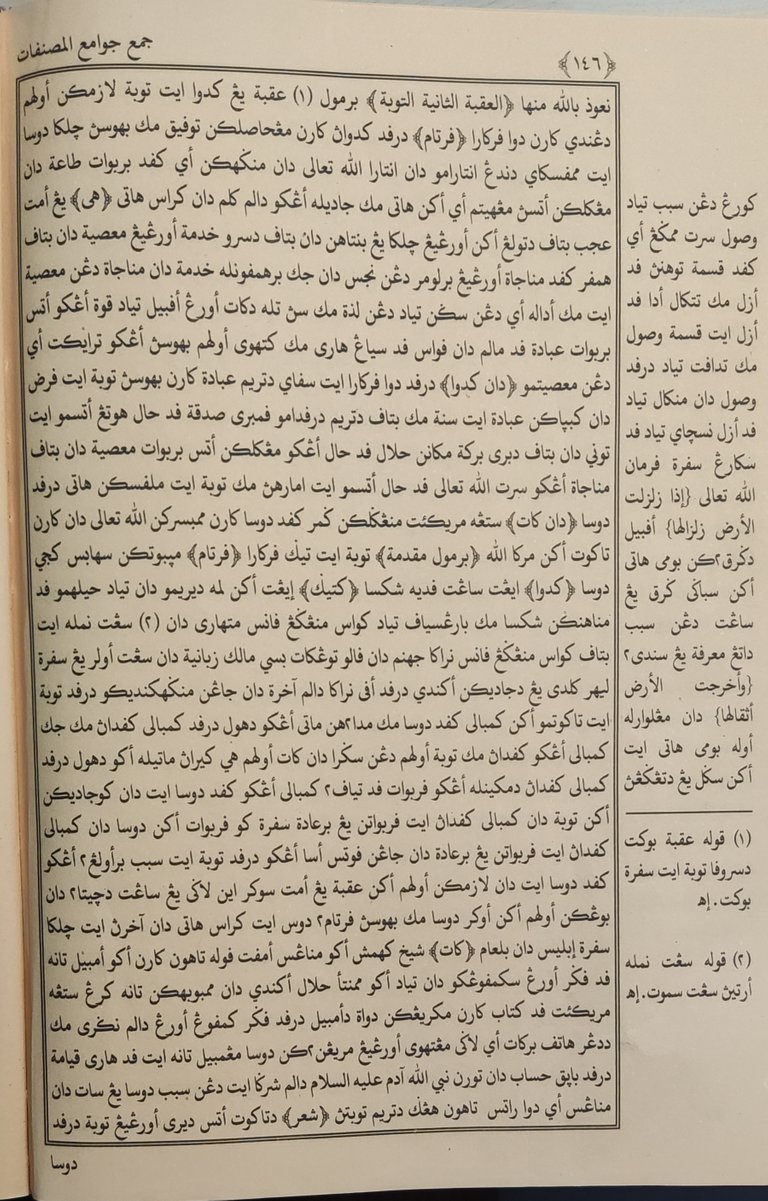 جمع جوامع المصنفات
﴿١٤٦﴾
نعوذ بالله منها ﴿العقبة الثانية التوبة﴾ برمول (١) عقبة يڠ كدوا ايت توبة لازمكن أولهم
دڠندي كارن دوا فركارا ﴿فرتام﴾ درفد كدواڽ كارن مڠحاصلكن توفيق مك بهوسڽ چلكا دوسا
ايت ممفسكاي دندڠ انتارامو دان انتارا الله تعالى دان منكهكن أي كفد بربوات طاعة دان
مڠكلكن أتسڽ مڠهيتم أي أكن هاتي مك جاديله أڠكو دالم كلم دان كراس هاتي ﴿هى﴾ يڠ أمت
عجب بتاف دتولڠ أكن أورڠيڠ چلكا يڠ بنتاهن دان بتاف دسرو خدمة أورڠيڠ معصية دان بتاف
همفر كفد مناجاة أورڠيڠ برلومر دڠن نجس دان جك برهمفونله خدمة دان مناجاة دڠن معصية
ايت مك أداله أي دڠن سكن تياد دڠن لذة مك سڽ تله دكات أورڠ أفبيل تياد قوة أڠكو أتس
بربوات عبادة فد مالم دان فواس فد سياڠ هاري مك كتهوي أولهم بهوسڽ أڠكو ترايكت أي
دڠن معصيتمو ﴿دان كدوا﴾ درفد دوا فركارا ايت سفاي دتريم عبادة كارن بهوسڽ توبة ايت فرض
دان كبپاكن عبادة ايت سنة مك بتاف دتريم درفدامو فمبري صدقة فد حال هوتڠ أتسمو ايت
توني دان بتاف دبري بركة مكانن حلال فد حال أڠكو مڠكلكن أتس بربوات معصية دان بتاف
مناجاة أڠكو سرت الله تعالى فد حال أتسمو ايت امارهڽ مك توبة ايت ملفسكن هاتي درفد
دوسا ﴿دان كات﴾ ستڠه مريكئت منڠكلكن كمر كفد دوسا كارن ممبسركن الله تعالى دان كارن
تاكوت أكن مركا الله ﴿برمول مقدمة﴾ توبة ايت تيݢ فركارا ﴿فرتام﴾ مپبوتكن سهابس كجي
دوسا ﴿كدوا﴾ ايڠت ساڠت فديه شكسا ﴿كتيݢ﴾ إيڠت أكن لمه ديريمو دان تياد حيلهمو فد
مناهنكن شكسا مك بارڠسياف تياد كواس منڠݢڠ فانس متهاري دان (٢) سڠت نمله ايت
بتاف كواس منڠݢڠ فانس نراكا جهنم دان فالو توڠكات بسي مالك زبانية دان سڠت أولر يڠ سفرة
ليهر كلدي يڠ دجاديكن أكندي درفد أفي نراكا دالم آخرة دان جاڠن منكهكنديكو درفد توبة
ايت تاكوتمو أكن كمبالي كفد دوسا مك مدا٢هن ماتي أڠكو دهول درفد كمبالي كفداڽ مك جك
كمبالي أڠكو كفداڽ مك توبة أولهم دڠن سكرا دان كات أولهم هي كيراڽ ماتيله أكو دهول درفد
كمبالي كفداڽ دمكينله أڠكو فربوات فد تياف٢ كمبالي أڠكو كفد دوسا ايت دان كوجاديكن
أكن توبة دان كمبالي كفداڽ ايت فربواتن يڠ برعادة سفرة كو فربوات أكن دوسا دان كمبالي
كفداڽ ايت فربواتن يڠ برعادة دان جاڠن فوتس أسا أڠكو درفد توبة ايت سبب برأولڠ٢ أڠكو
كفد دوسا ايت دان لازمكن أولهم أكن عقبة يڠ أمت سوكر اين لاݢي يڠ ساڠت دچيتا٢ دان
بوڠكن أولهم أكن أوكر دوسا مك بهوسڽ فرتام٢ دوس ايت كراس هاتي دان آخرڽ ايت چلكا
سفرة إبليس دان بلعام ﴿كات﴾ شيخ كهمش أكو مناڠس أمفت فوله تاهون كارن أكو أمبيل تانه
فد فݢر أورڠ سكمفوڠكو دان تياد أكو ممنتأ حلال أكندي دان ممبوبهكن تانه كرڠ ستڠه
مريكئت فد كتاب كارن مكريڠكن دواة دأمبيل درفد فݢر كمفوڠ أورڠ دالم نݢري مك
ددڠر هاتف بركات أي لاݢي مڠتهوي أورڠيڠ مريڠن٢كن دوسا مڠمبيل تانه ايت فد هاري قيامة
درفد باپق حساب دان تورن نبي الله آدم عليه السلام دالم شرݢا ايت دڠن سبب دوسا يڠ سات دان
مناڠس أي دوا راتس تاهون هڠݢ دتريم توبتڽ ﴿شعر﴾ دتاكوت أتس ديري أورڠيڠ توبة درفد
دوسا
كورڠ دڠن سبب تياد
وصول سرت ممݢڠ أي
كفد قسمة توهنڽ فد
أزل مك تتكال أدا فد
أزل ايت قسمة وصول
مك تدافت تياد درفد
وصول دان منكال تياد
فد أزل نسچاي تياد فد
سكارڠ سفرة فرمان
الله تعالى {إذا زلزلت
الأرض زلزالها} أفبيل
دݢرق٢كن بومي هاتي
أكن سباݢي ݢرق يڠ
ساڠت دڠن سبب
داتڠ معرفة يڠ سندي٢
{وأخرجت الأرض
أثقالها} دان مڠلوارله
أوله بومي هاتي ايت
أكن سݢل يڠ دتڠݢڠڽ
(١) قوله عقبة بوكت
دسروفا توبة ايت سفرة
بوكت. إﻫ
(٢) قوله سڠت نمله
أرتيڽ سڠت سموت. إﻫ